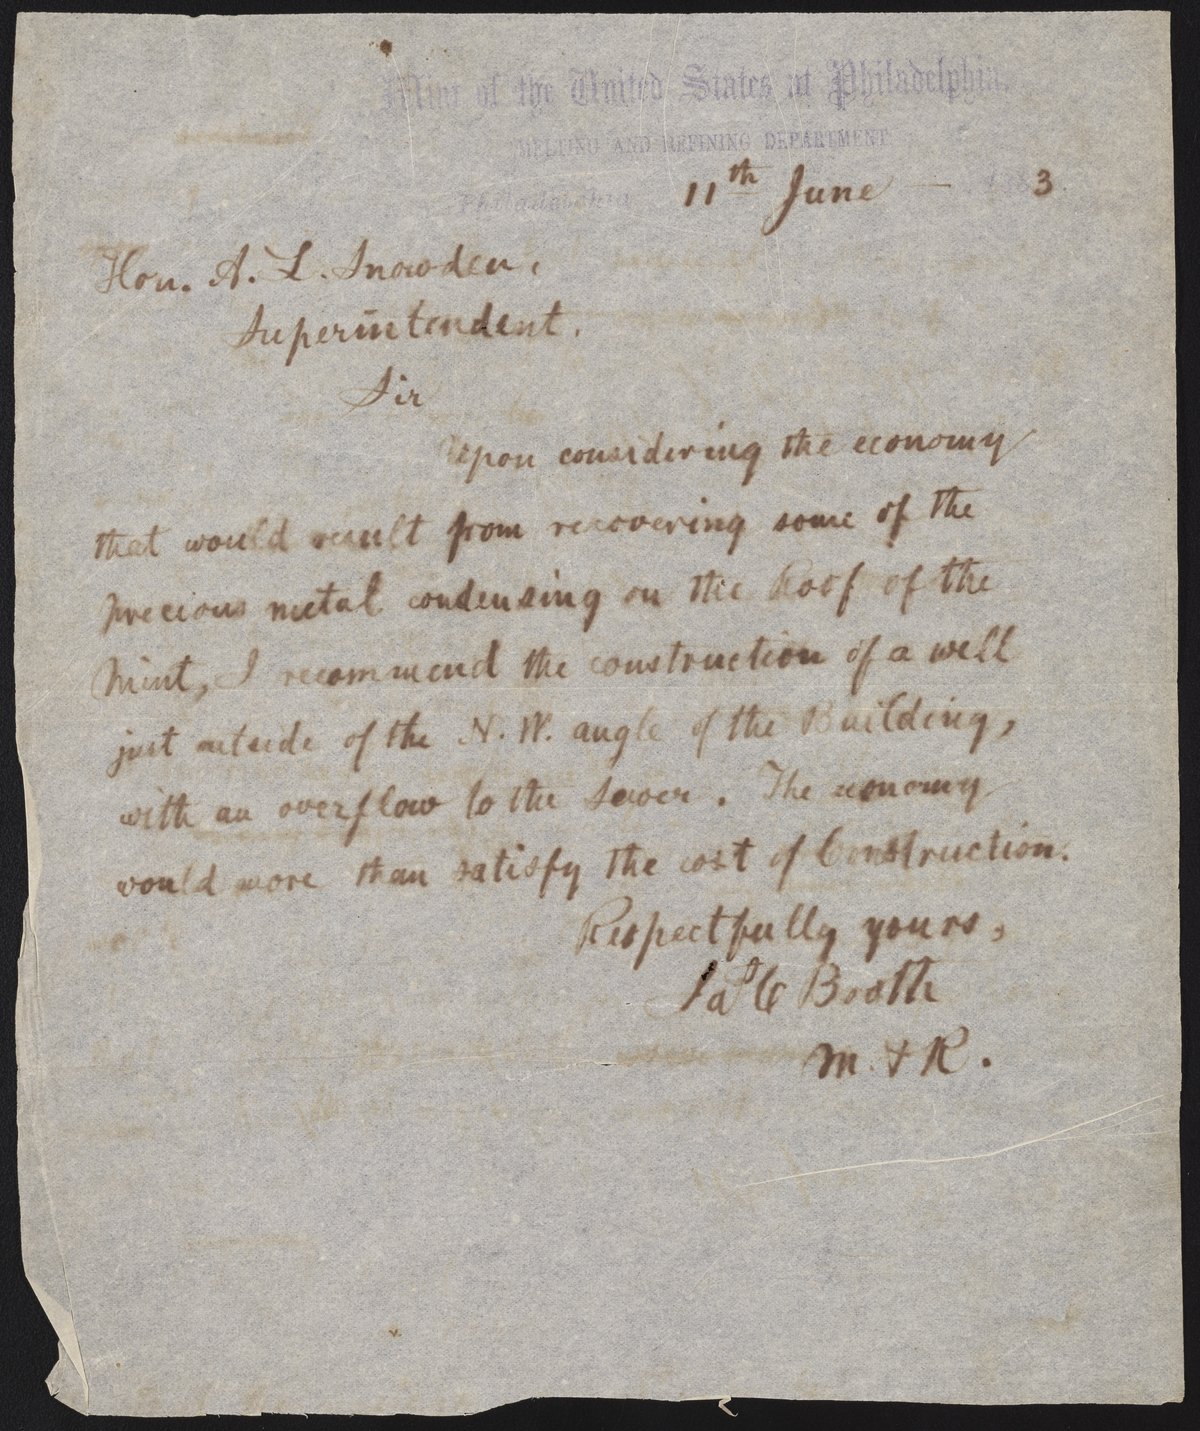 Mint of the United States at Philadelphia.
MELTING AND REFINING DEPARTMENT
Philadelphia 11th June — 3
Hon. A. L. Snowden,
Superintendent.
Sir
Upon considering the economy
that would result from recovering some of the
precious metal condensing on the Roof of the
Mint, I recommend the construction of a well
just outside of the N. W. angle of the Building,
with an overflow to the sewer. The economy
would more than satisfy the cost of Construction.
Respectfully yours,
Jas C Booth
M. & R.